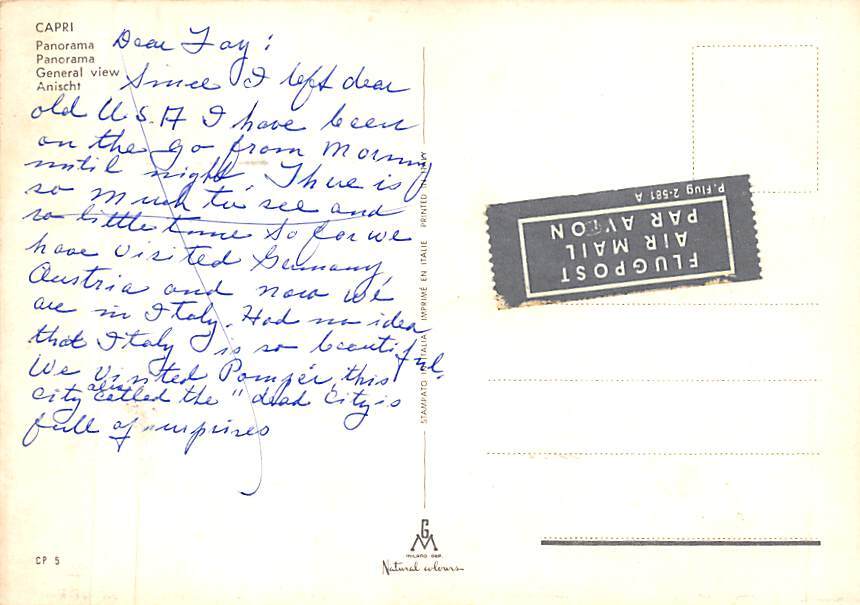 CAPRI
Panorama
Panorama
General view
Anischt
Dear Fay:
Since I left dear
old U.S.A I have been
on the go from morning
until night. There is
so much to see and
so little time So far we
have visited Germany,
Austria and now we
are in Italy. Had no idea
that Italy is so beautiful.
We visited Pompei, this
city also called the "dead City is
full of surprises
STAMPATO IN ITALIA IMPRIMÉ EN ITALIE PRINTED IN ITALY
P. Flug 2-581 A
FLUGPOST
AIR MAIL
PAR AVION
CP 5
GM
MILANO DEP.
Natural colours